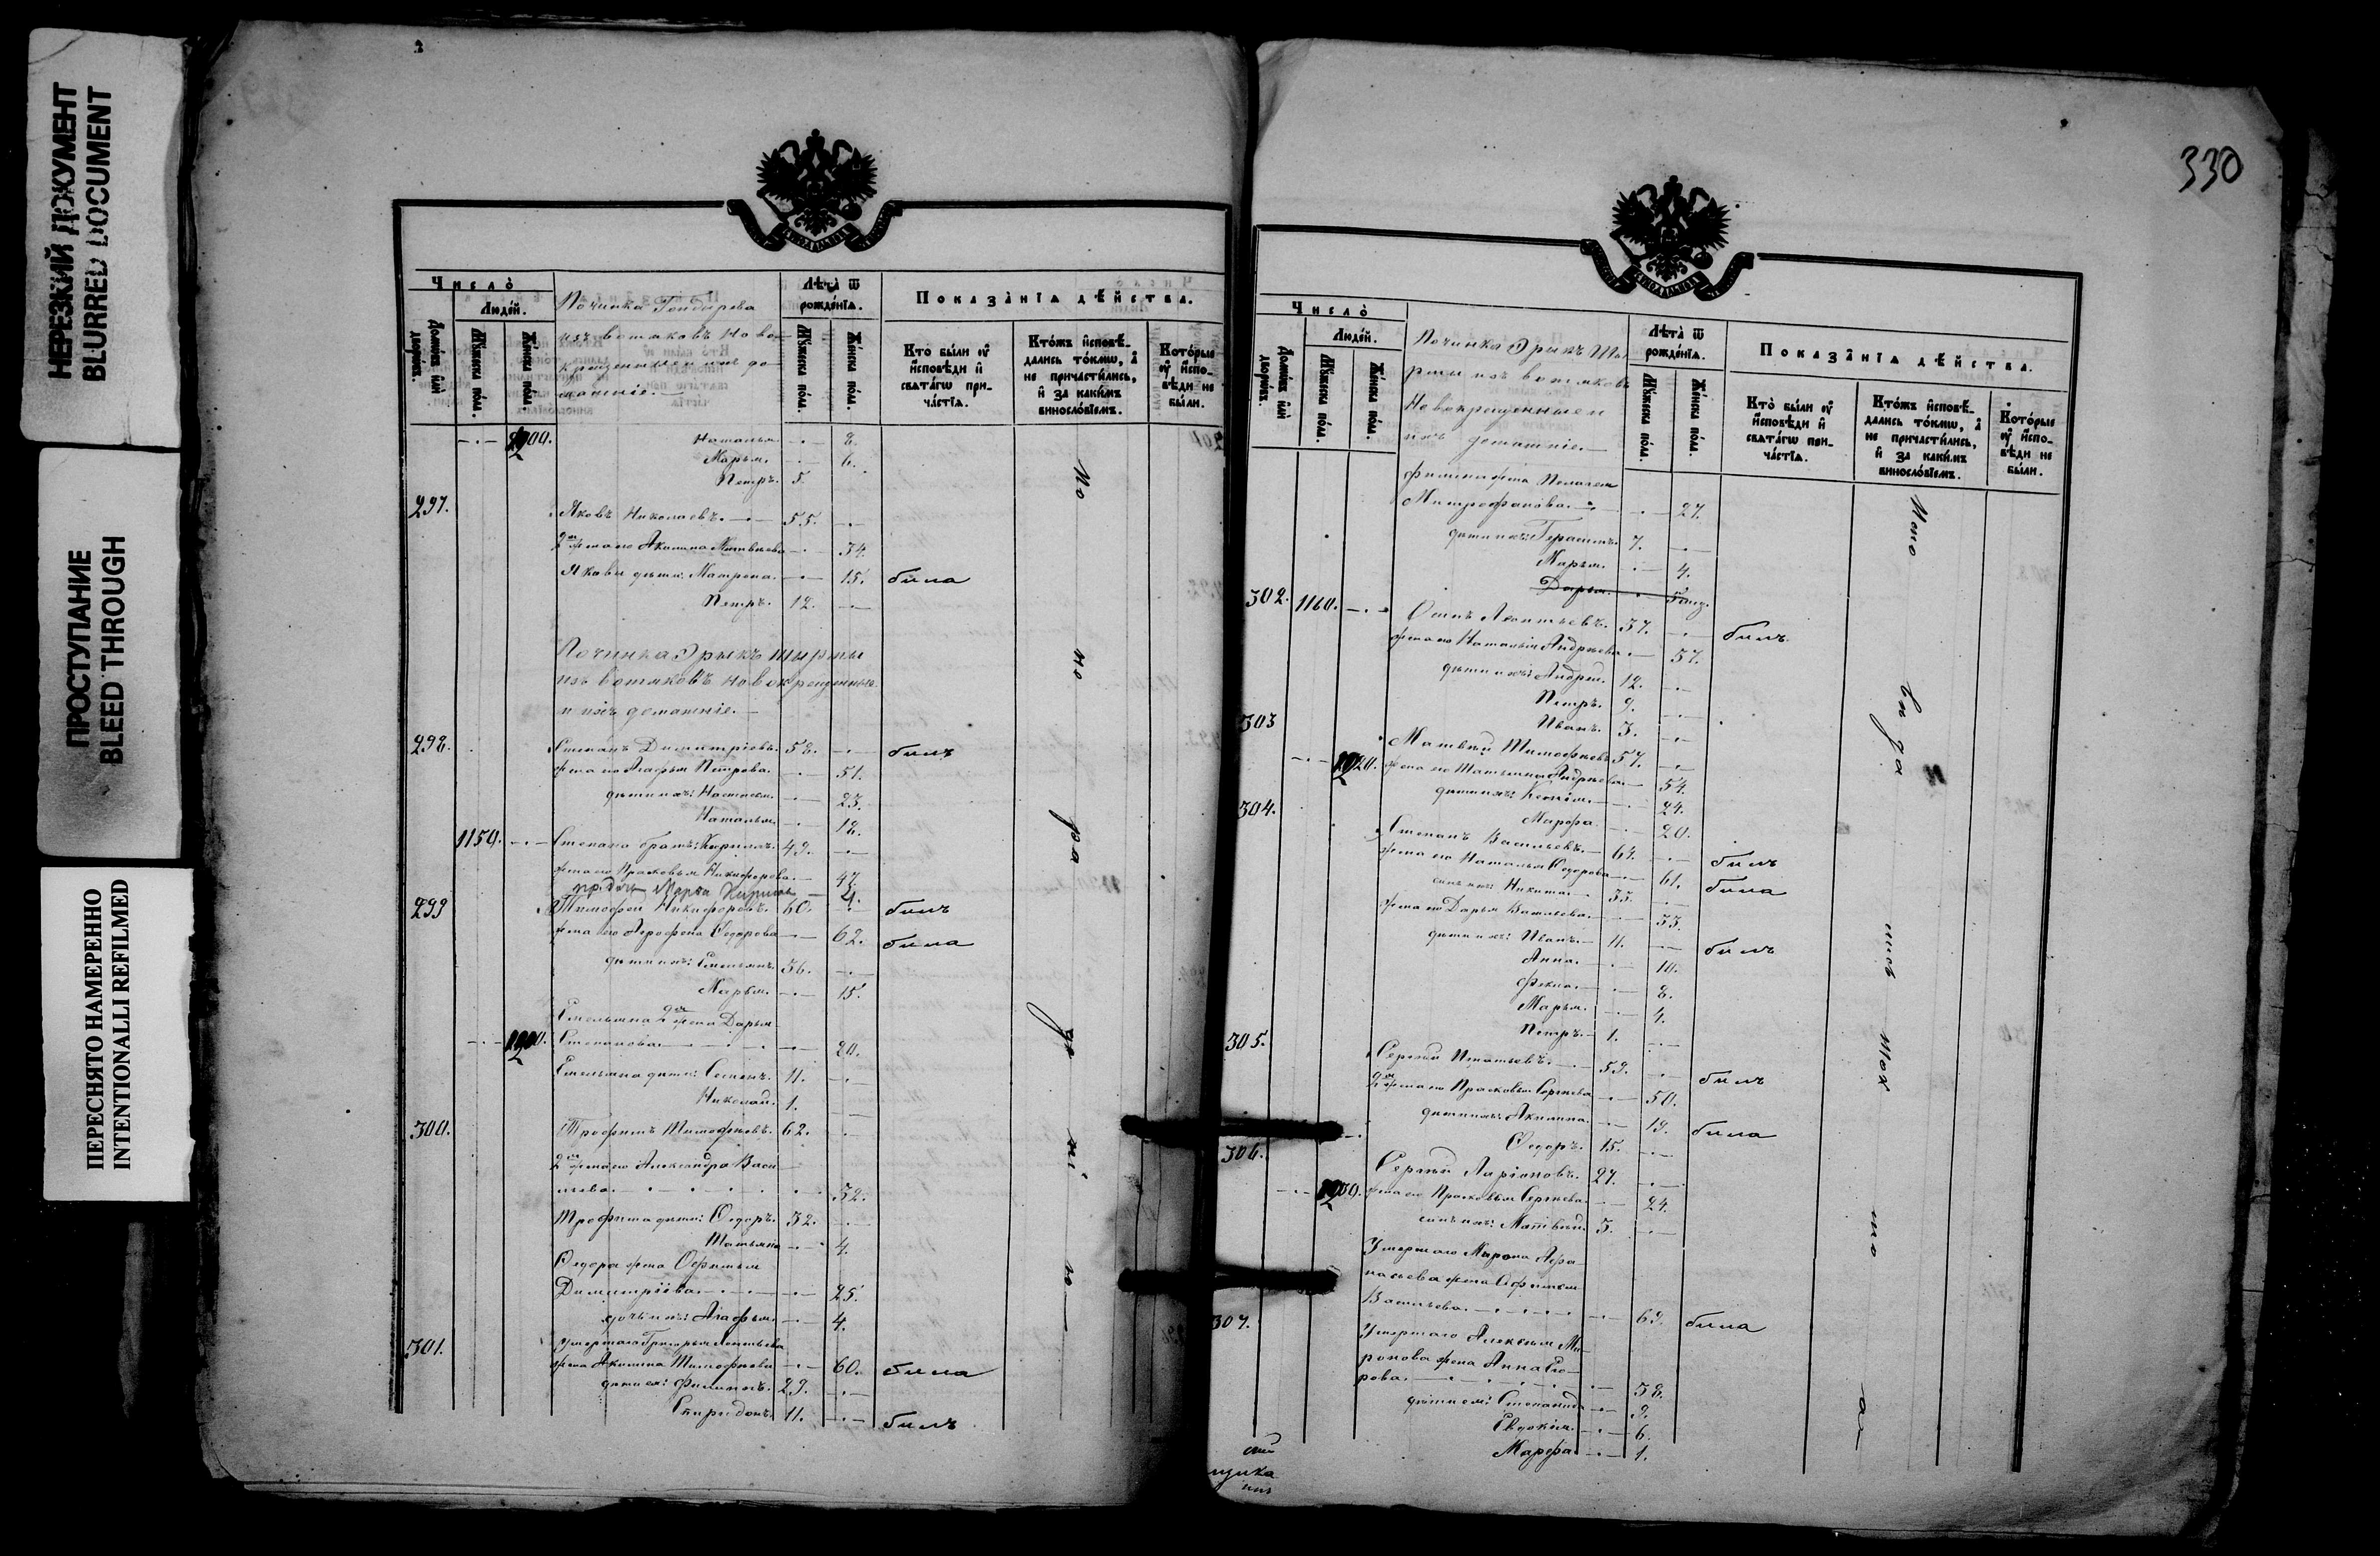 НЕРЕЗКИЙ ДОКУМЕНТ
BLURRED DOCUMENT
ПРОСТУПАНИЕ
BLEED THROUGH
ПЕРЕСНЯТО НАМЕРЕННО
INTENTIONALLI REFILMED
Число̀
Людей.
Домѡвъ или дворѡвъ.
Мꙋжеска пола.
Женска пола.
Починка Гондырева
изъ вотяковъ ново
крещенные и ихъ до
машніе.
Лѣта ѿ рожденїѧ.
Мꙋжеска пола.
Женска пола.
Показанїѧ дѣйства.
Кто были оу исповѣди и свѧтагѡ причастїѧ.
Ктожъ исповѣдались токмѡ, а не причастились, и за какимъ винословїемъ.
Которые оу исповѣди не были.
Наталья. 8.
Марья. 6.
Петръ. 5.
297. Яковъ Николаевъ. 55.
2я жена его Акилина Матвѣева 34.
Якова дѣти: Матрона. 15. была
Петръ. 12.
Починка Эрыкъ Тырмы
изъ вотяковъ новокрещенные
и ихъ домашніе.
298. Степанъ Димитріевъ. 58. былъ
жена его Агафья Петрова. 51.
дѣти ихъ: Настасья. 23.
Наталья. 18.
1150. Степана братъ: Кирилъ. 49.
жена его Прасковья Никифорова. 47.
Марѳа
299 Тимофей Никифоровъ. 60. былъ
жена его Агрофена Ѳедорова 62. была
дѣти ихъ: Емельянъ. 36.
Марья. 15.
Емельяна 2я жена Дарья
Степанова. 20.
Емельяна дѣти: Семенъ. 11.
Николай. 1.
300. Трофимъ Тимофѣевъ. 62.
2я жена его Александра Васи
льева. 52.
Трофима дѣти: Ѳедоръ. 32.
Татьяна 4.
Ѳедора жена Ефимья
Димитріева. 25.
дочь ихъ: Агафья. 4.
301. Умершаго Григорья Леонтьева
жена Акилина Тимофѣева 60. была
дѣти ея: Филипъ. 29.
Спиридонъ. 11. былъ
По
не
ра
дѣ
ні
ю
330
Число̀
Людей.
Домѡвъ или дворѡвъ.
Мꙋжеска пола.
Женска пола.
Починка Эрыкъ Ты
рмы изъ вотяковъ
Новокрещенные и
ихъ домашніе.
Лѣта ѿ рожденїѧ.
Мꙋжеска пола.
Женска пола.
Показанїѧ дѣйства.
Кто были оу исповѣди и свѧтагѡ причастїѧ.
Ктожъ исповѣдались токмѡ, а не причастились, и за какимъ винословїемъ.
Которые оу исповѣди не были.
Филипа жена Пелагея
Митрофанова. 27.
дѣти ихъ: Герасимъ. 7.
Марья. 4.
Дарья.
302. 1160. Осипъ Леонтьевъ. 37. былъ
жена его Наталья Андреева 57.
дѣти ихъ: Андрей. 12.
Петръ. 9.
Иванъ. 3.
303 Матвѣй Тимофѣевъ 57.
жена его Татьяна Андреева 54.
дѣти ихъ: Ксенія. 24.
Марфа. 20.
304. Степанъ Васильевъ. 64. былъ
жена его Наталья Ѳедорова 61. была
сынъ ихъ: Никита. 35.
жена его Дарья Васильева. 33.
дѣти ихъ: Иванъ. 11. былъ
Анна. 10.
Фекла. 8.
Марья. 4.
Петръ. 1.
305. Сергѣй Игнатьевъ. 59. былъ
2я жена его Прасковья Сергѣева 50.
дѣти ихъ: Акилина. 19. была
Ѳедоръ. 15.
306. Сергѣй Ларіоновъ. 27.
жена его Прасковья Сергѣева. 24.
сынъ ихъ: Матвѣй. 3.
Умершаго Мирона Афа
насьева жена Ефимья
Васильева. 69. была
307. Умершаго Алексѣя Ми
ронова жена Анна
рова. 38.
дѣти ея: Степанида 9.
Евдокія. 6.
Марфа. 1.